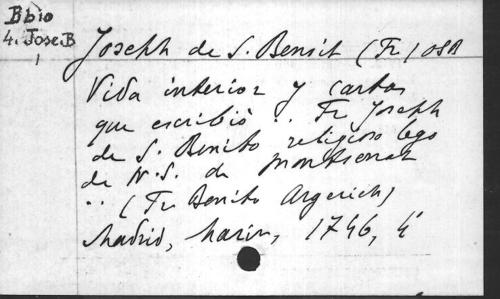 Bbio
4. Jose.B
1
Joseph de S. Benit (Fr) OSB
Vida interior y cartas
que escribió .. Fr Joseph
de S. Benito religioso lego
de N.S. de Montserrat
.. (Fr Benito Argerich)
Madrid, Marin, 1746, 4º